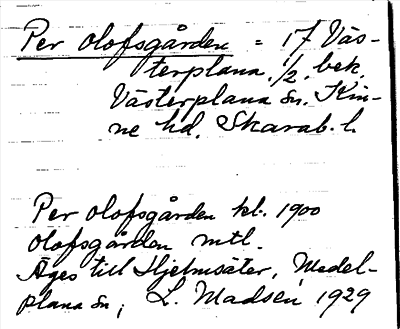 Per olofsgården = 17 Väs-
terplana. 1/2. bek.
Västerplana sn. Kin-
ne hd. Skarab. l.
Per olofsgården kl. 1900
olofsgården mtl.
Äges till Hjelmsäter, Medel-
plana sn; L. Madsén 1929